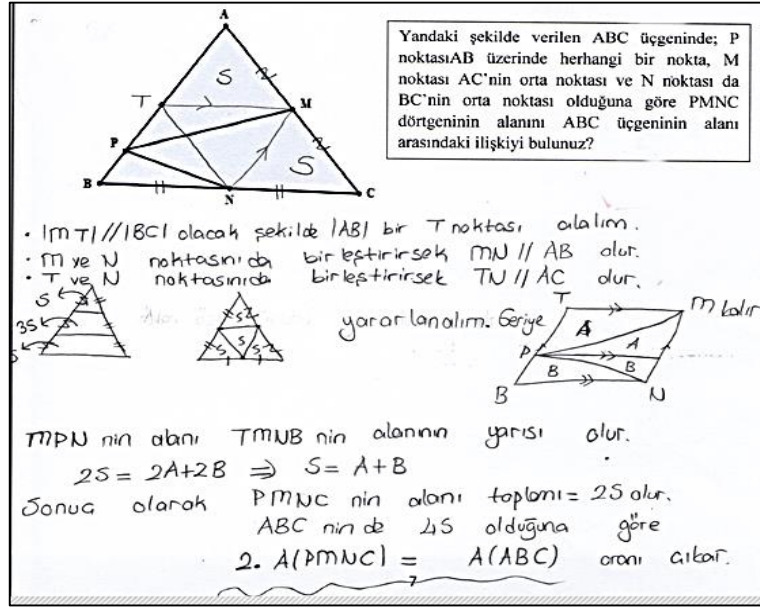 A
S
T
M
P
S
B
N
C
Yandaki şekilde verilen ABC üçgeninde; P
noktasıAB üzerinde herhangi bir nokta, M
noktası AC'nin orta noktası ve N noktası da
BC'nin orta noktası olduğuna göre PMNC
dörtgeninin alanını ABC üçgeninin alanı
arasındaki ilişkiyi bulunuz?
• |MT|//|BC| olacak şekilde |AB| bir T noktası alalım.
• M ve N noktasınıda birleştirirsek MN // AB olur.
• T ve N noktasınıda birleştirirsek TN // AC olur.
S
3S
S
S
S
S
yararlanalım. Geriye
T
M kalır
A
P
A
B
B
B
N
MPN nin alanı TMNB nin alanının yarısı olur.
2S = 2A+2B ⇒ S = A+B
Sonuc olarak PMNC nin alanı toplamı = 2S olur.
ABC nin de 4S olduğuna göre
2. A(PMNC) = A(ABC) oranı çıkar.
7